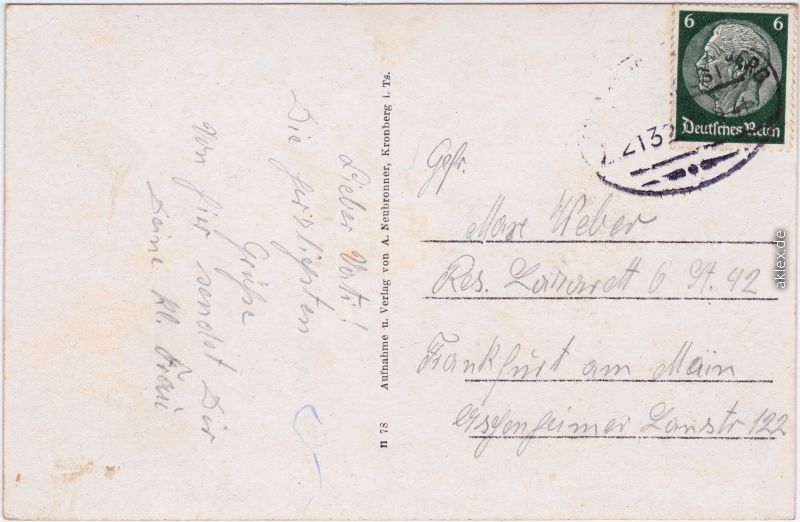 Lieber Vati!
Die herzlichsten
Grüße
von hier sendet Dir
Deine kl. Frau
n 78 Aufnahme u. Verlag von A. Neubronner, Kronberg i. Ts.
6 6
Deutsches Reich
2132
Gefr.
Max Weber
Res. Lazarett 6 St. 42
Frankfurt am Main
Eschenheimer Lanstr 122
aklex.de